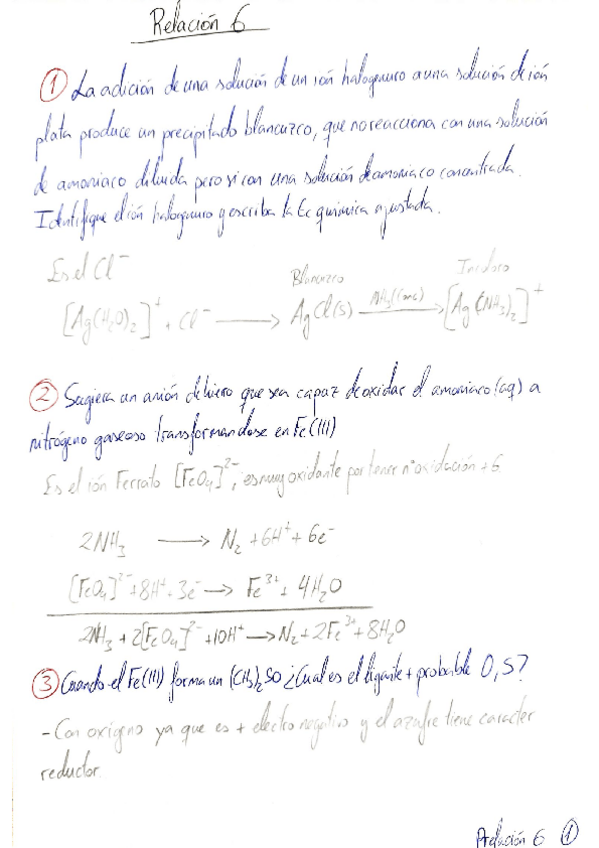 Relación 6
① La adición de una solución de un ión halogenuro a una solución de ión
plata produce un precipitado blancuzco, que no reacciona con una solución
de amoniaco diluida pero si con una solución de amoniaco concentrada.
Identifique el ión halogenuro y escriba la Ec química ajustada.
Es el Cl⁻
Blancuzco Incoloro
[Ag(H₂O)₂]⁺ + Cl⁻ ⟶ AgCl(s) —NH₃(conc)→ [Ag(NH₃)₂]⁺
② Sugiera un anión de hierro que sea capaz de oxidar el amoniaco (aq) a
nitrógeno gaseoso transformandose en Fe(III)
Es el ión Ferrato [FeO₄]²⁻, es muy oxidante por tener nº oxidación +6.
2NH₃ ⟶ N₂ + 6H⁺ + 6e⁻
[FeO₄]²⁻ + 8H⁺ + 3e⁻ → Fe³⁺ + 4H₂O
2NH₃ + 2[FeO₄]²⁻ + 10H⁺ → N₂ + 2Fe³⁺ + 8H₂O
③ Cuando el Fe(III) forma un (CH₃)₂SO ¿Cual es el ligante + probable O, S?
- Con oxígeno ya que es + electronegativo y el azufre tiene caracter
reductor.
6 ①